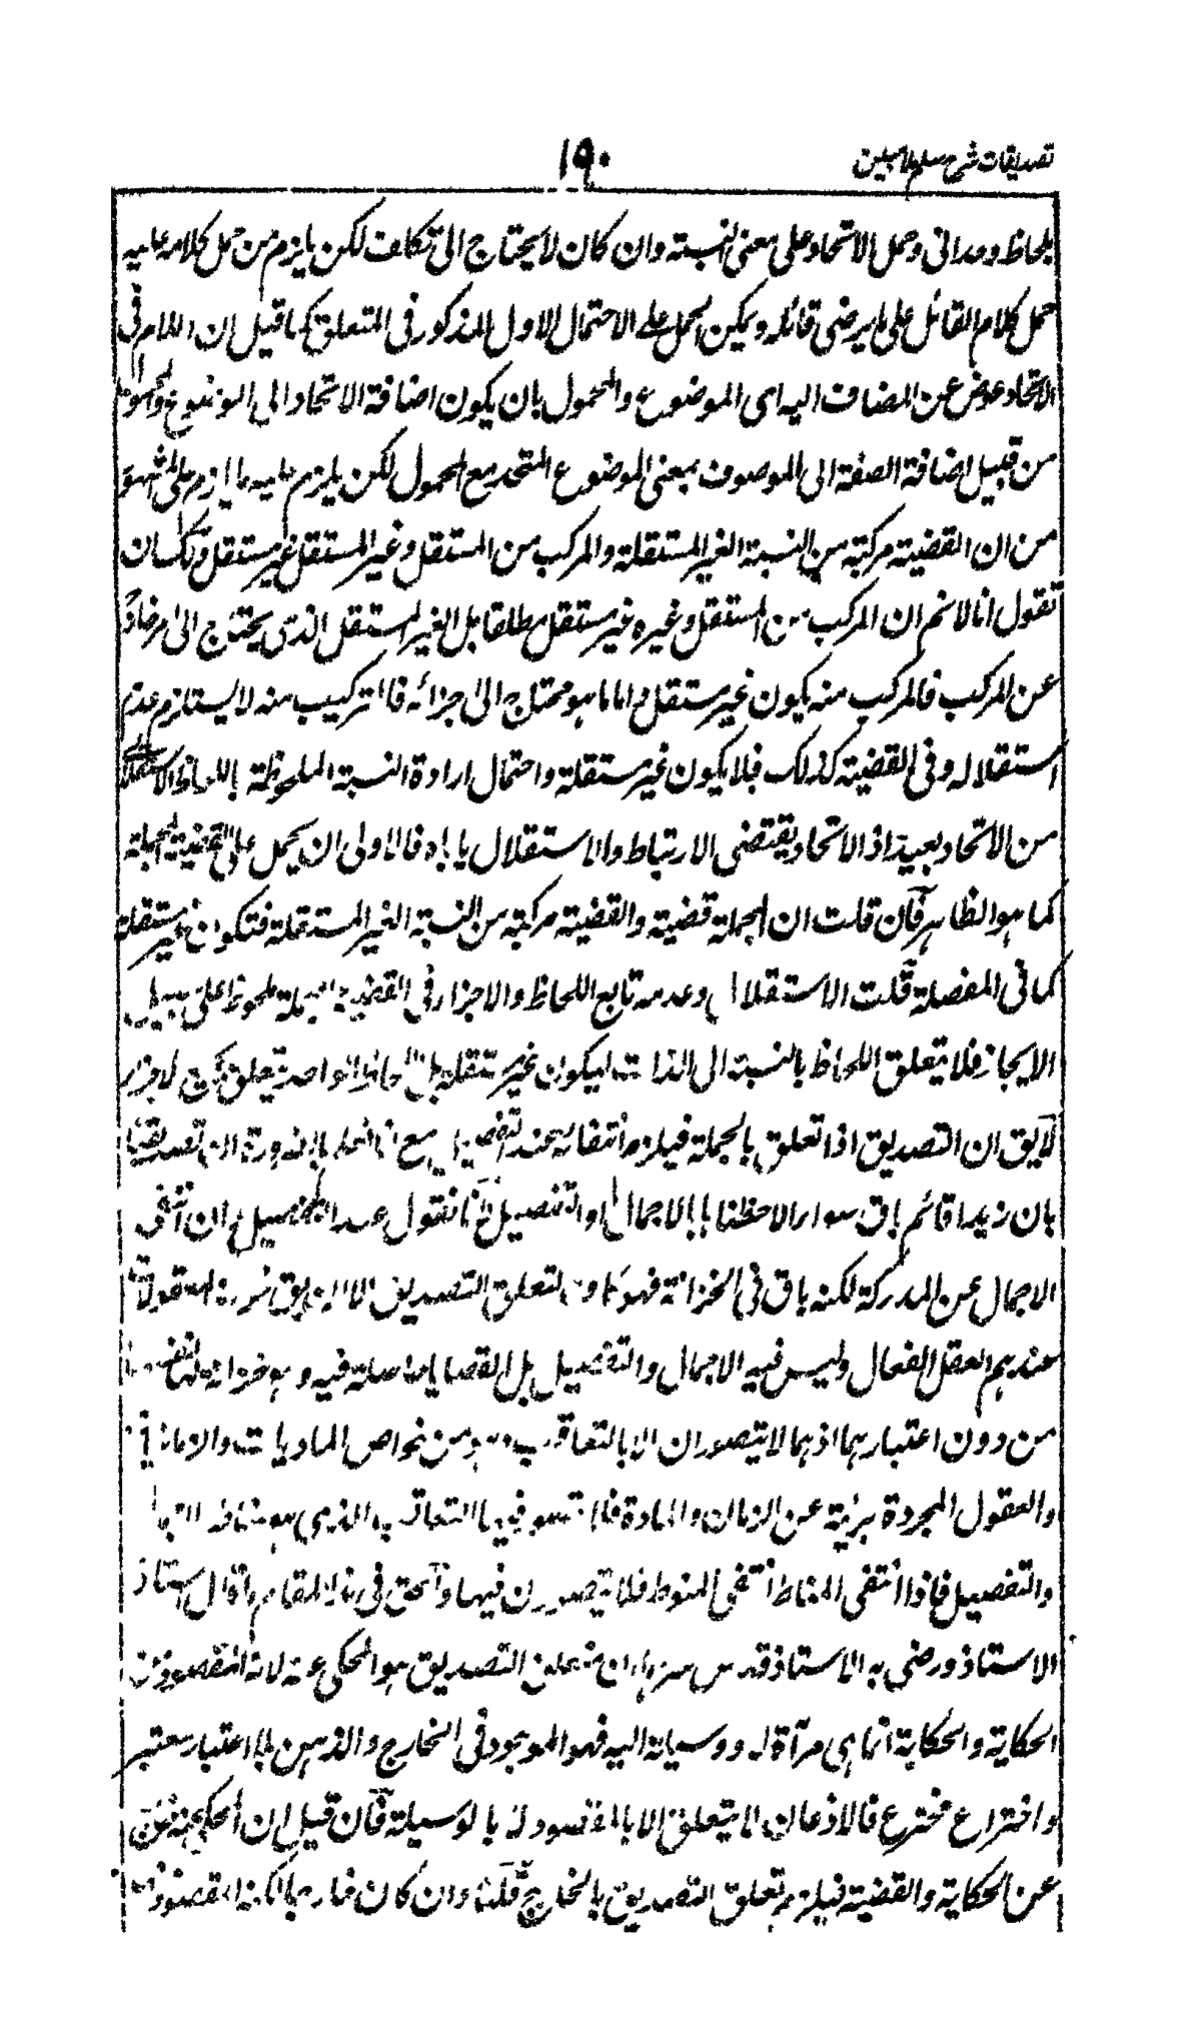 تصديقات شرح سلم ملا مبين
١٩٠
بلحاظ وحدانى وحمل الاتحاد على معنى النسبة وان كان لا يحتاج الى تكلف لكن يلزم من حمل كلامه عليه
حمل كلام القائل على ما لا يرضى قائله ويمكن الحمل على الاحتمال الاول المذكور فى المتعلق كما قيل ان اللام فى
الاتحاد عوض عن المضاف اليه اى الموضوع والمحمول بان يكون اضافة الاتحاد الى الموضوع والمحمول
من قبيل اضافة الصفة الى الموصوف بمعنى الموضوع المتحد مع المحمول لكن يلزم عليه ما يلزم على المشهور
من ان القضية مركبة من النسبة الغير المستقلة والمركب من المستقل وغير المستقل غير مستقل ولك ان
تقول انا لا نم ان المركب من المستقل وغيره غير مستقل مطلقا بل الغير المستقل الذى يحتاج الى امر خارج
عن المركب فالمركب منه يكون غير مستقل واما ما هو محتاج الى اجزائه فالتركيب منه لا يستلزم عدم
استقلاله وفى القضية كذلك فلا يكون غير مستقلة واحتمال ارادة النسبة الملحوظة باللحاظ الاستقلالى
من الاتحاد بعيد اذ الاتحاد يقتضى الارتباط والاستقلال ياباه فالاولى ان يحمل على القضية المجملة
كما هو الظاهر فان قلت ان المجملة قضية والقضية مركبة من النسبة الغير المستقلة فتكون غير مستقلة
كما فى المفصلة قلت الاستقلال وعدمه تابع اللحاظ والاجزاء فى القضية المجملة ملحوظ على سبيل
الايجاز فلا يتعلق اللحاظ بالنسبة الى الذات ليكون غير مستقلة بل اللحاظ الواحد يتعلق بجميع الاجزاء
لا يق ان التصديق اذا تعلق بالمجملة فيلزم انتفائه عند التفصيل مع انا نعلم بالضرورة ان تصديقنا
بان زيدا قائم باق سواء لاحظنا بالاجمال او التفصيل لانا نقول عند التفصيل وان انتفى
الاجمال عن المدركة لكنه باق فى الخزانة فهو لتعلق التصديق لا يق خزينة المعقولات
عندهم العقل الفعال وليس فيه الاجمال والتفصيل بل القضايا حاصلة فيه وهو خزانة لها
من دون اعتبارهما اذ هما لا يتصوران الا بالتعاقب وهو من خواص الماديات والزمانيات
والعقول المجردة بريئة عن الزمان والمادة فلا يتصور فيها التعاقب الذى هو مناط الاجمال
والتفصيل فاذا انتفى المناط انتفى المنوط فلا يتصوران فيها والحق فى هذا المقام ما قال استاذ
الاستاذ ورضى به الاستاذ قدس سرهما ان متعلق التصديق هو المحكى عنه لانه المقصود من
الحكاية والحكاية انما هى مرآة له ووسيلة اليه فهو الموجود فى الخارج والذهن بلا اعتبار معتبر
واختراع مخترع فالاذعان لا يتعلق الا بالمقصود لا بالوسيلة فان قيل ان المحكى عنه خارج
عن الحكاية والقضية فيلزم تعلق التصديق بالخارج قلنا وان كان خارجا لكنه المقصود